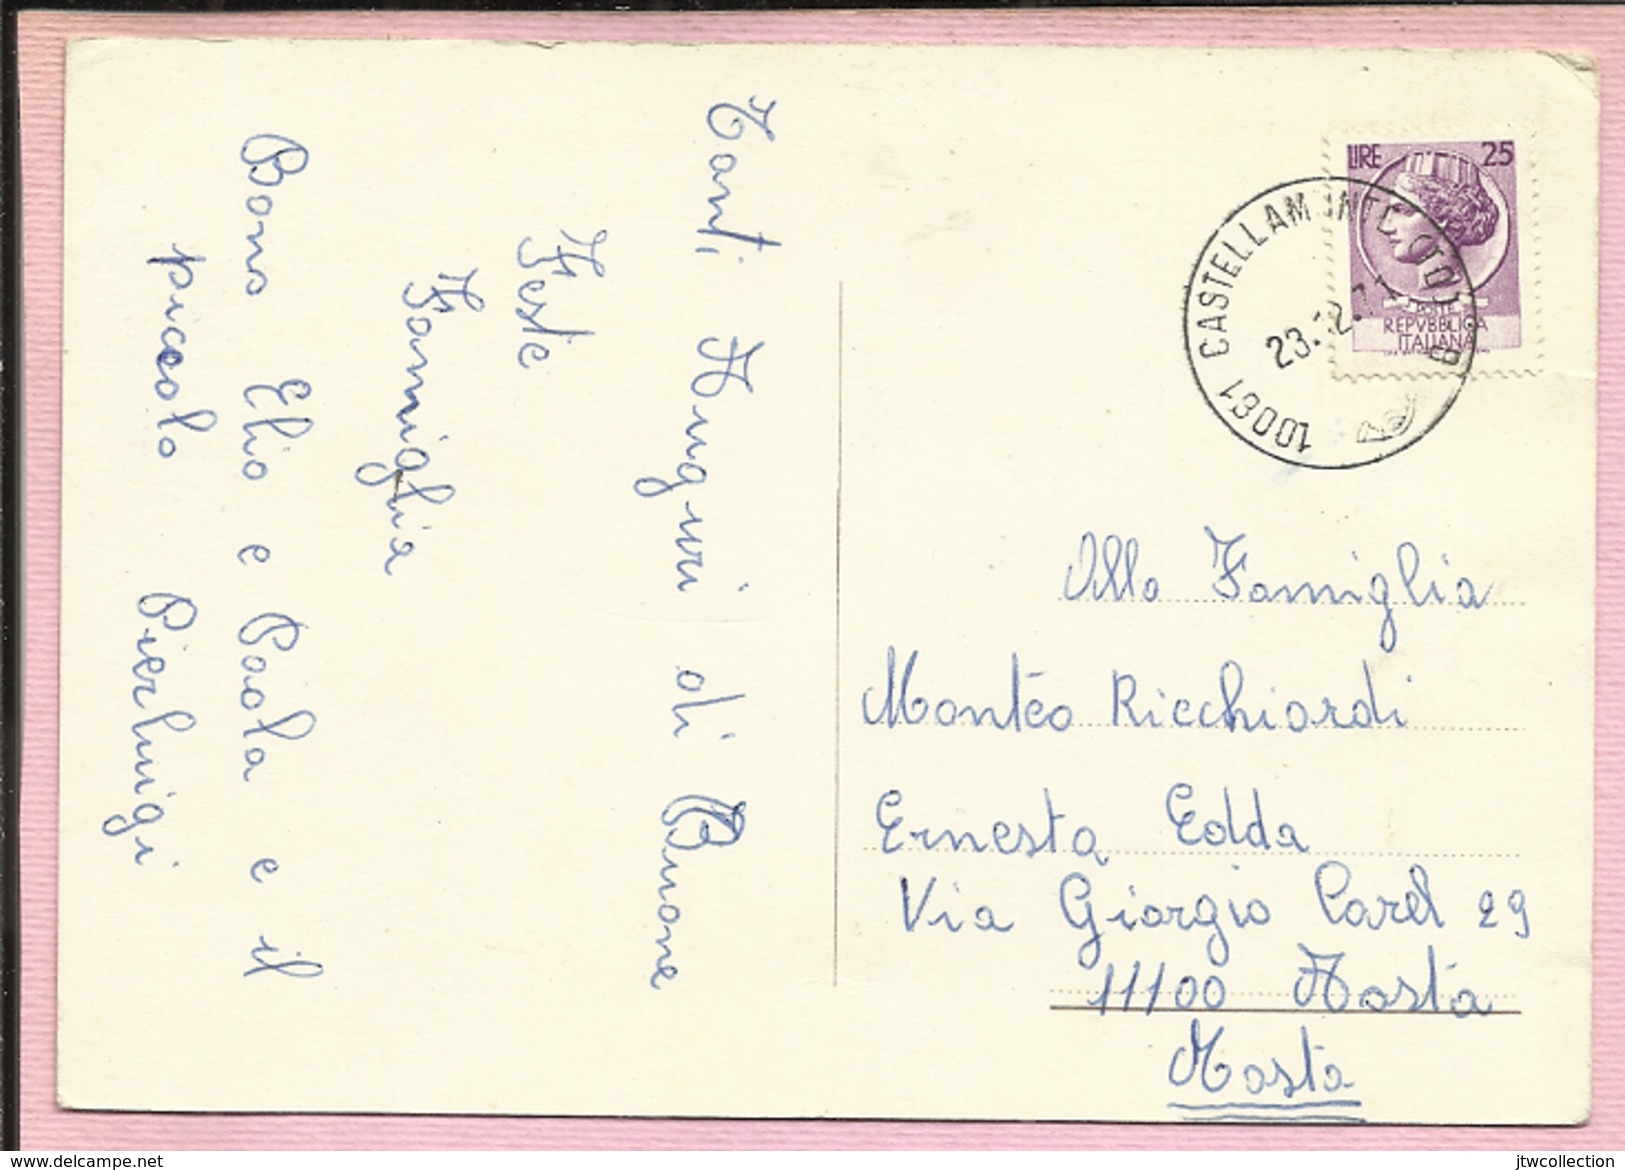 Tanti Auguri di Buone
Feste
Famiglia
Bono Elio e Paola e il
piccolo Pierluigi
LIRE 25
POSTE
REPVBBLICA
ITALIANA
10081 CASTELLAMONTE (TO)
23.12.71
Alla Famiglia
Montéo Ricchiardi
Ernesta Edda
Via Giorgio Carel 29
11100 Aosta
Aosta
delcampe.net
jtwcollection